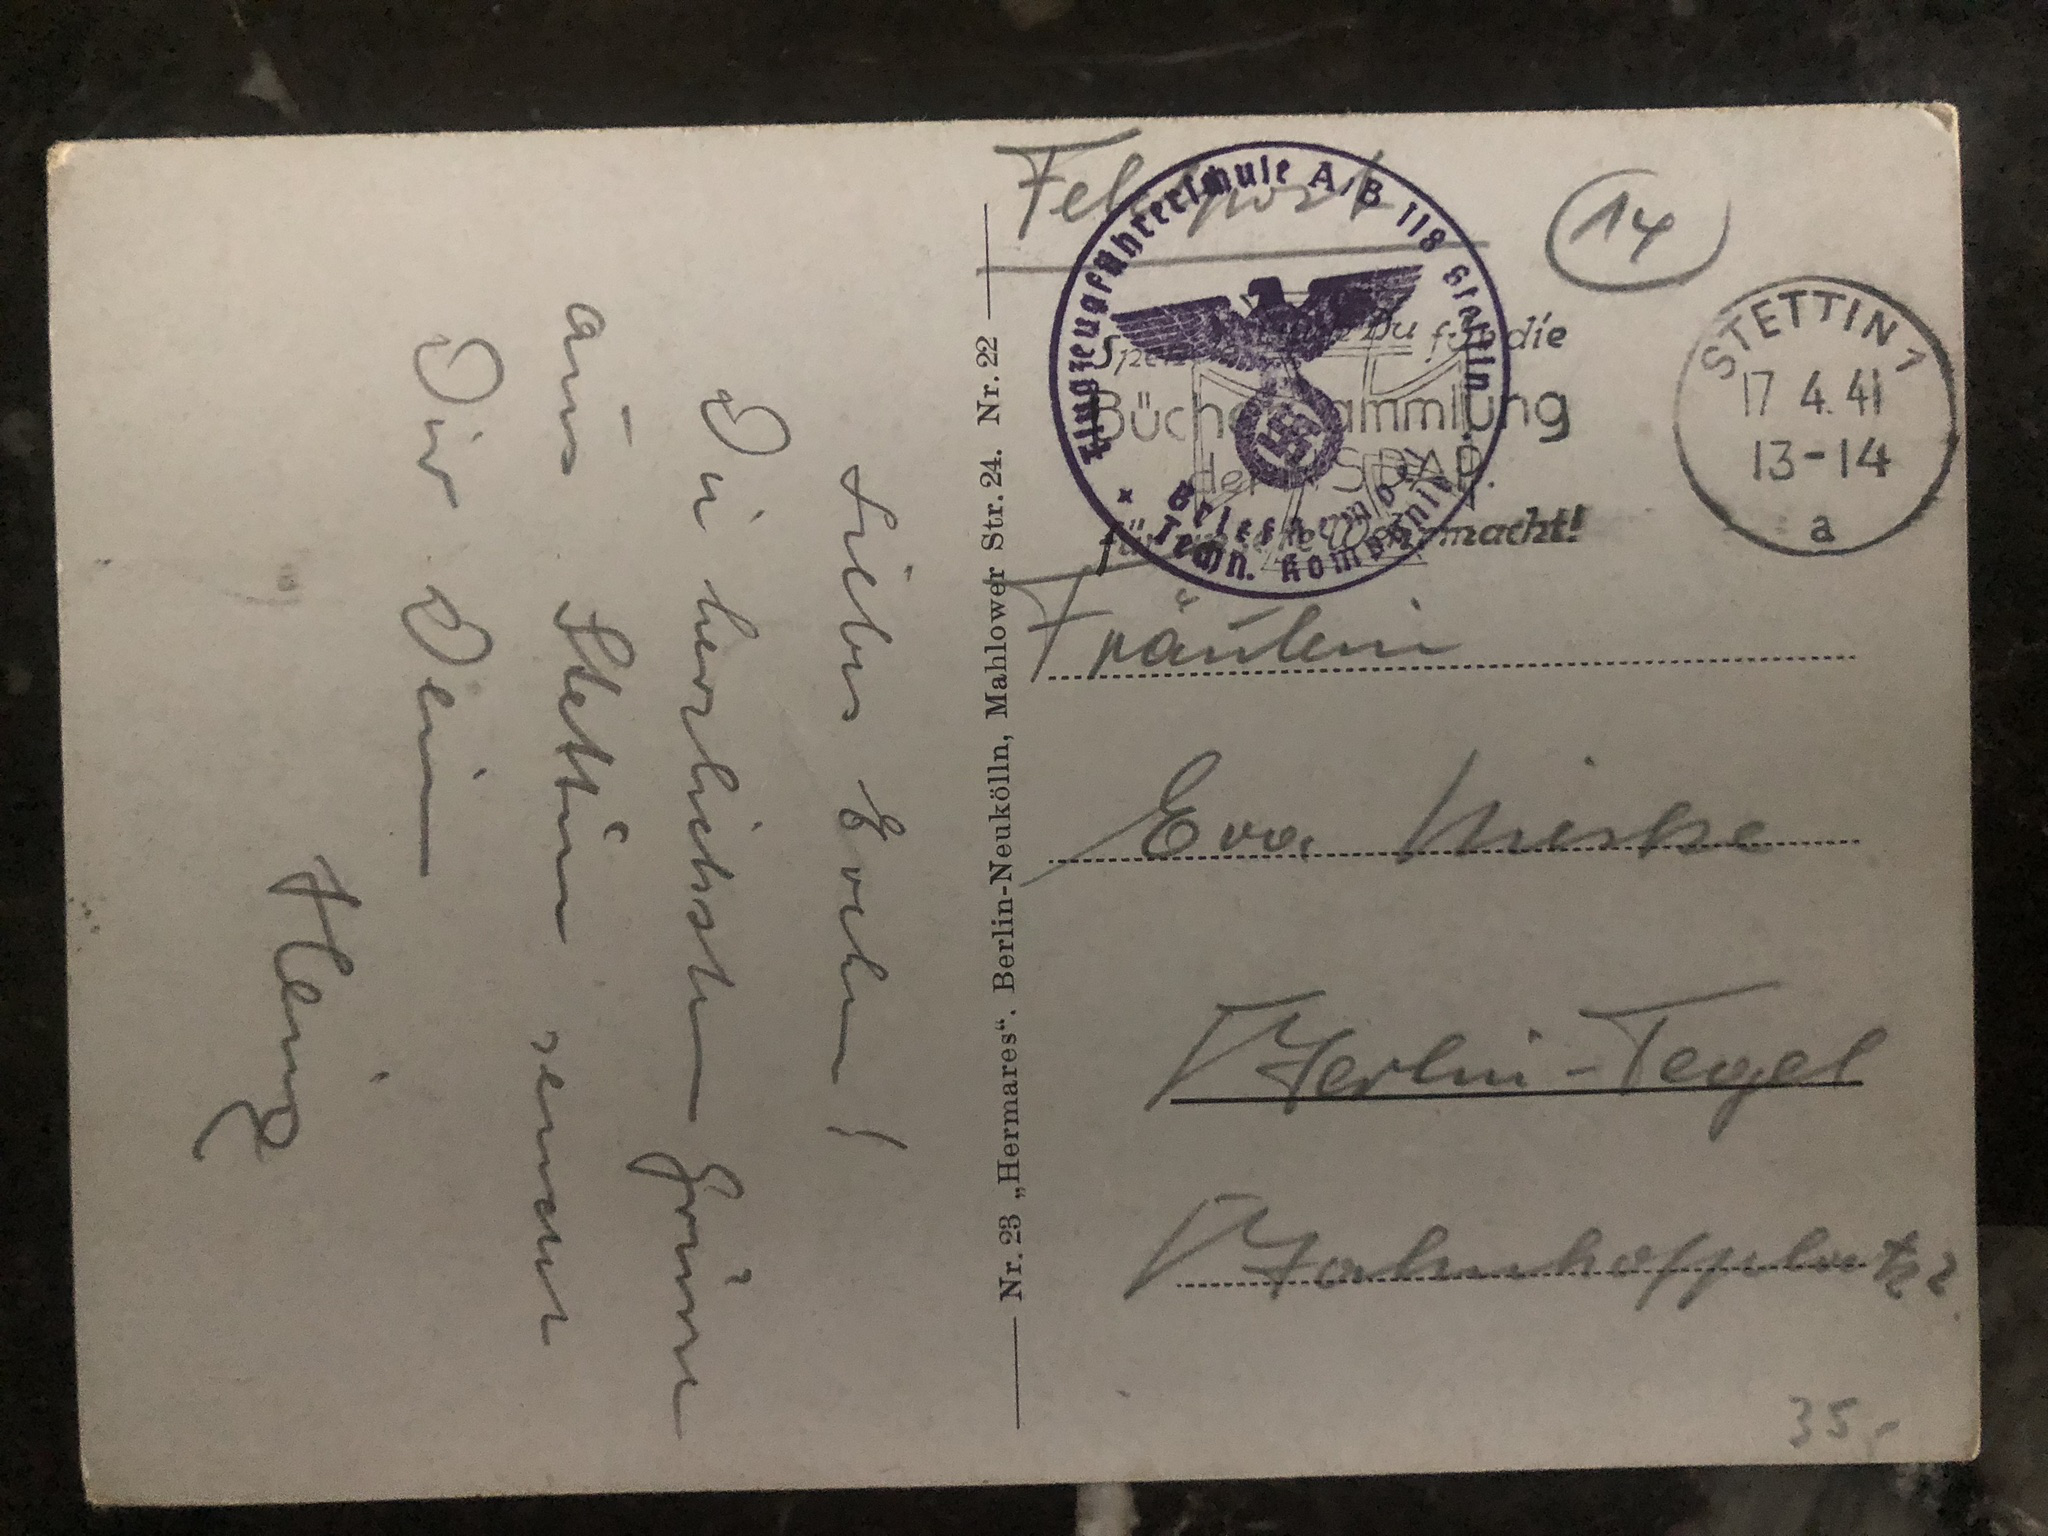 Feldpost
14
Flugzeugführerschule A/B 118 Stettin
Briefstempel
Techn. Kompanie
Spende auch Du für die
Büchersammlung
der NSDAP.
für unsere Wehrmacht!
STETTIN 1
17.4.41
13-14
a
Fräulein
Eva
Berlin-Tegel
Bahnhofplatz 2
35.-
Nr. 23 „Hermares“. Berlin-Neukölln, Mahlower Str. 24. Nr. 22
Liebes Evchen!
Die herzlichsten Grüsse
aus Stettin sendet
Dir Dein
Heinz